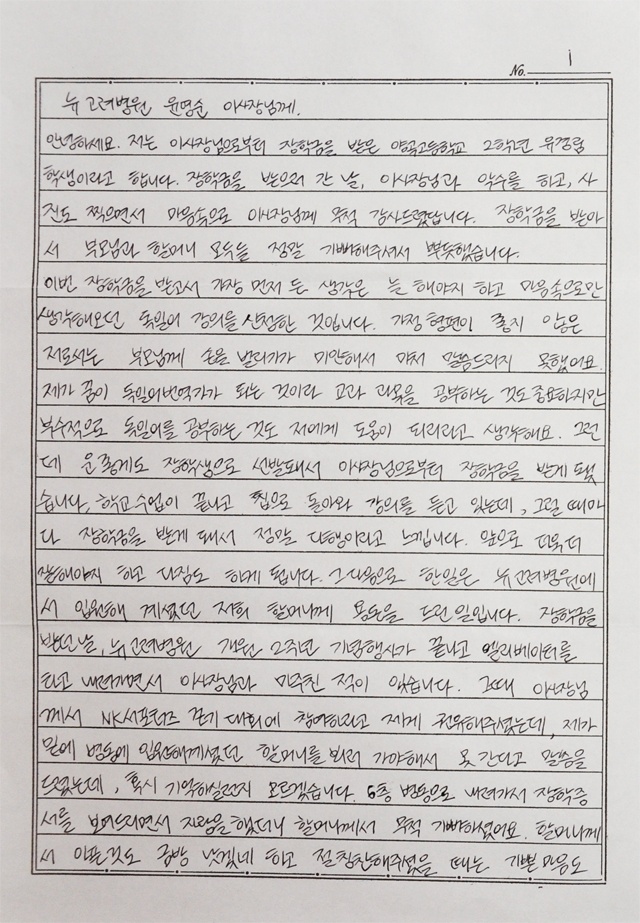 No. 1
뉴고려병원 윤영순 이사장님께.
안녕하세요. 저는 이사장님으로부터 장학금을 받은 양곡고등학교 2학년 유경림
학생이라고 합니다. 장학금을 받으러 간 날, 이사장님과 악수를 하고, 사
진도 찍으면서 마음속으로 이사장님께 무척 감사드렸답니다. 장학금을 받아
서 부모님과 할머니 모두들 정말 기뻐해주셔서 뿌듯했습니다.
이번 장학금을 받고서 가장 먼저 든 생각은 늘 해야지 하고 마음속으로만
생각해오던 독일어 강의를 신청한 것입니다. 가정형편이 좋지 않은
저로서는 부모님께 손을 벌리기가 미안해서 마저 말씀드리지 못했어요.
제가 꿈이 독일어번역가가 되는 것이라 교과 과목을 공부하는 것도 중요하지만
부수적으로 독일어를 공부하는 것도 저에게 도움이 되리라고 생각해요. 그런
데 운좋게도 장학생으로 선발돼서 이사장님으로부터 장학금을 받게 됐
습니다. 학교수업이 끝나고 집으로 돌아와 강의를 듣고 있는데, 그럴 때마
다 장학금을 받게 돼서 정말 다행이라고 느낍니다. 앞으로 더욱 더
잘해야지 하고 다짐도 하게 됩니다. 그 다음으로 한일은 뉴고려병원에
서 입원해 계셨던 저희 할머니께 용돈을 드린 일입니다. 장학금을
받던 날, 뉴고려병원 개원 2주년 기념행사가 끝나고 엘리베이터를
타고 내려가면서 이사장님과 마주친 적이 있습니다. 그때 이사장님
께서 NK서포터즈 걷기 대회에 참여하라고 제게 권유해주셨는데, 제가
밑에 병동에 입원해계셨던 할머니를 뵈러 가야해서 못 간다고 말씀을
드렸는데, 혹시 기억하실런지 모르겠습니다. 6층 병동으로 내려가서 장학증
서를 보여드리면서 자랑을 했더니 할머니께서 무척 기뻐하셨어요. 할머니께
서 아픈것도 금방 낫겠네 하고 절 칭찬해주셨을 때는 기쁜 마음도